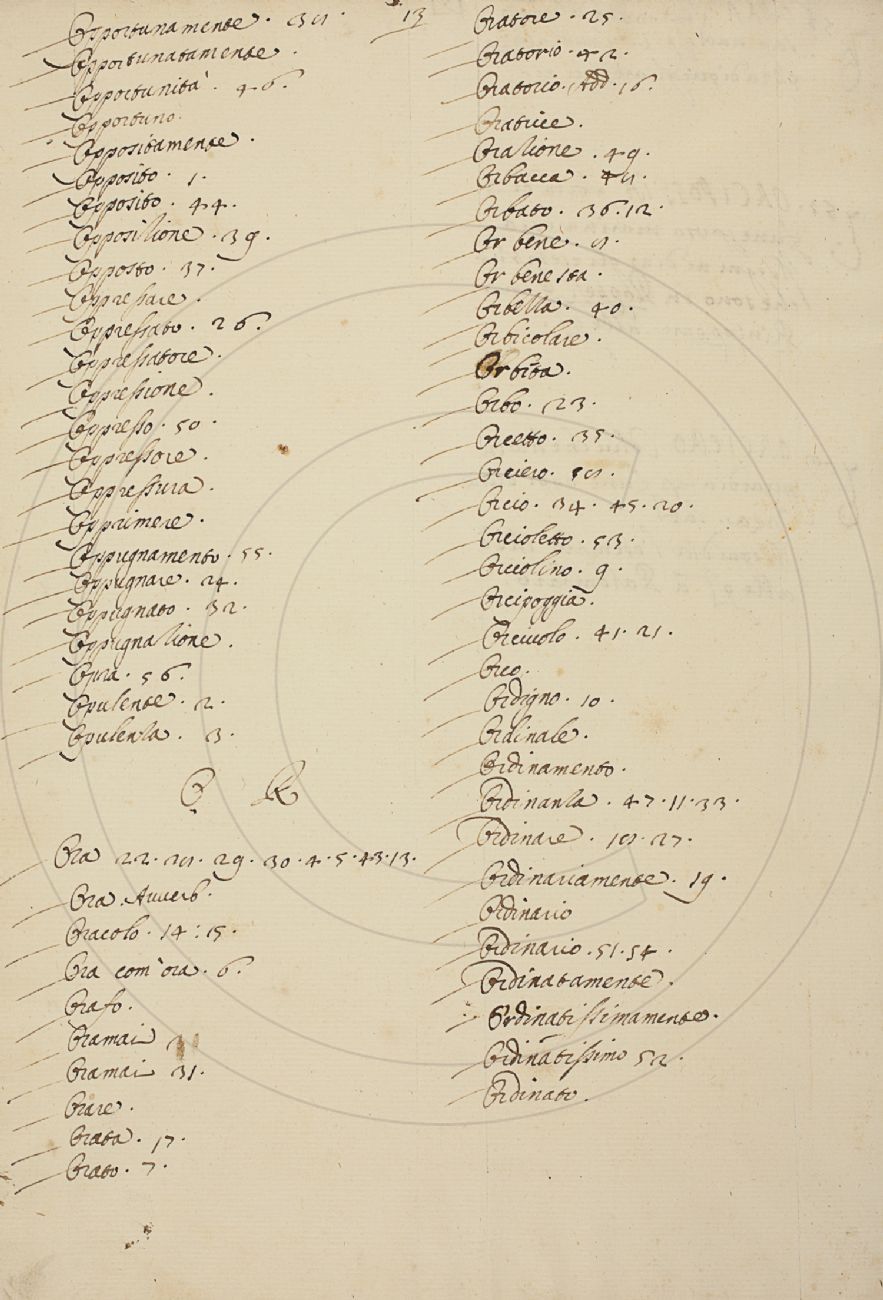 13
Opportunamente. 38.
Opportunatamente.
Opportunità. 46.
Opportuno.
Oppositamente.
Opposito. 1.
Opposito. 44.
Opposizione. 39.
Opposto. 37.
Oppressare.
Oppressato. 26.
Oppressatore.
Oppressione.
Oppresso. 50.
Oppressore.
Oppressura.
Opprimere.
Oppugnamento. 55.
Oppugnare. 24.
Oppugnato. 32.
Oppugnazione.
Opra. 56.
Opulente. 2.
Opulenza. 3.
O R
Ora 22. 28. 29. 30. 4. 5. 43. 13.
Ora. Avverb.
Oracolo. 14: 15.
Ora com'ora. 6.
Orafo.
Oramai
Oramai 31.
Orare.
Orata. 17.
Orato. 7.
Oratore. 25.
Oratorio. 42.
Oratorio. Add. 16.
Oratrice.
Orazione. 49.
Orbacca. 48.
Orbato. 36. 12.
Or bene. 8.
Or benesta.
Orbella. 40.
Orbicolare.
Orbita.
Orbo. 23.
Orcetto. 35.
Orciero. 58.
Orcio. 34. 45. 20.
Orcioletto. 53.
Orciolino. 9.
Orcipoggia.
Orciuolo. 41. 21.
Orco.
Ordigno. 10.
Ordinale.
Ordinamento.
Ordinanza. 47. 11. 33.
Ordinare. 18. 27.
Ordinariamente. 19.
Ordinario
Ordinario. 51. 54.
Ordinatamente.
Ordinatissimamente.
Ordinatissimo 52.
Ordinato.